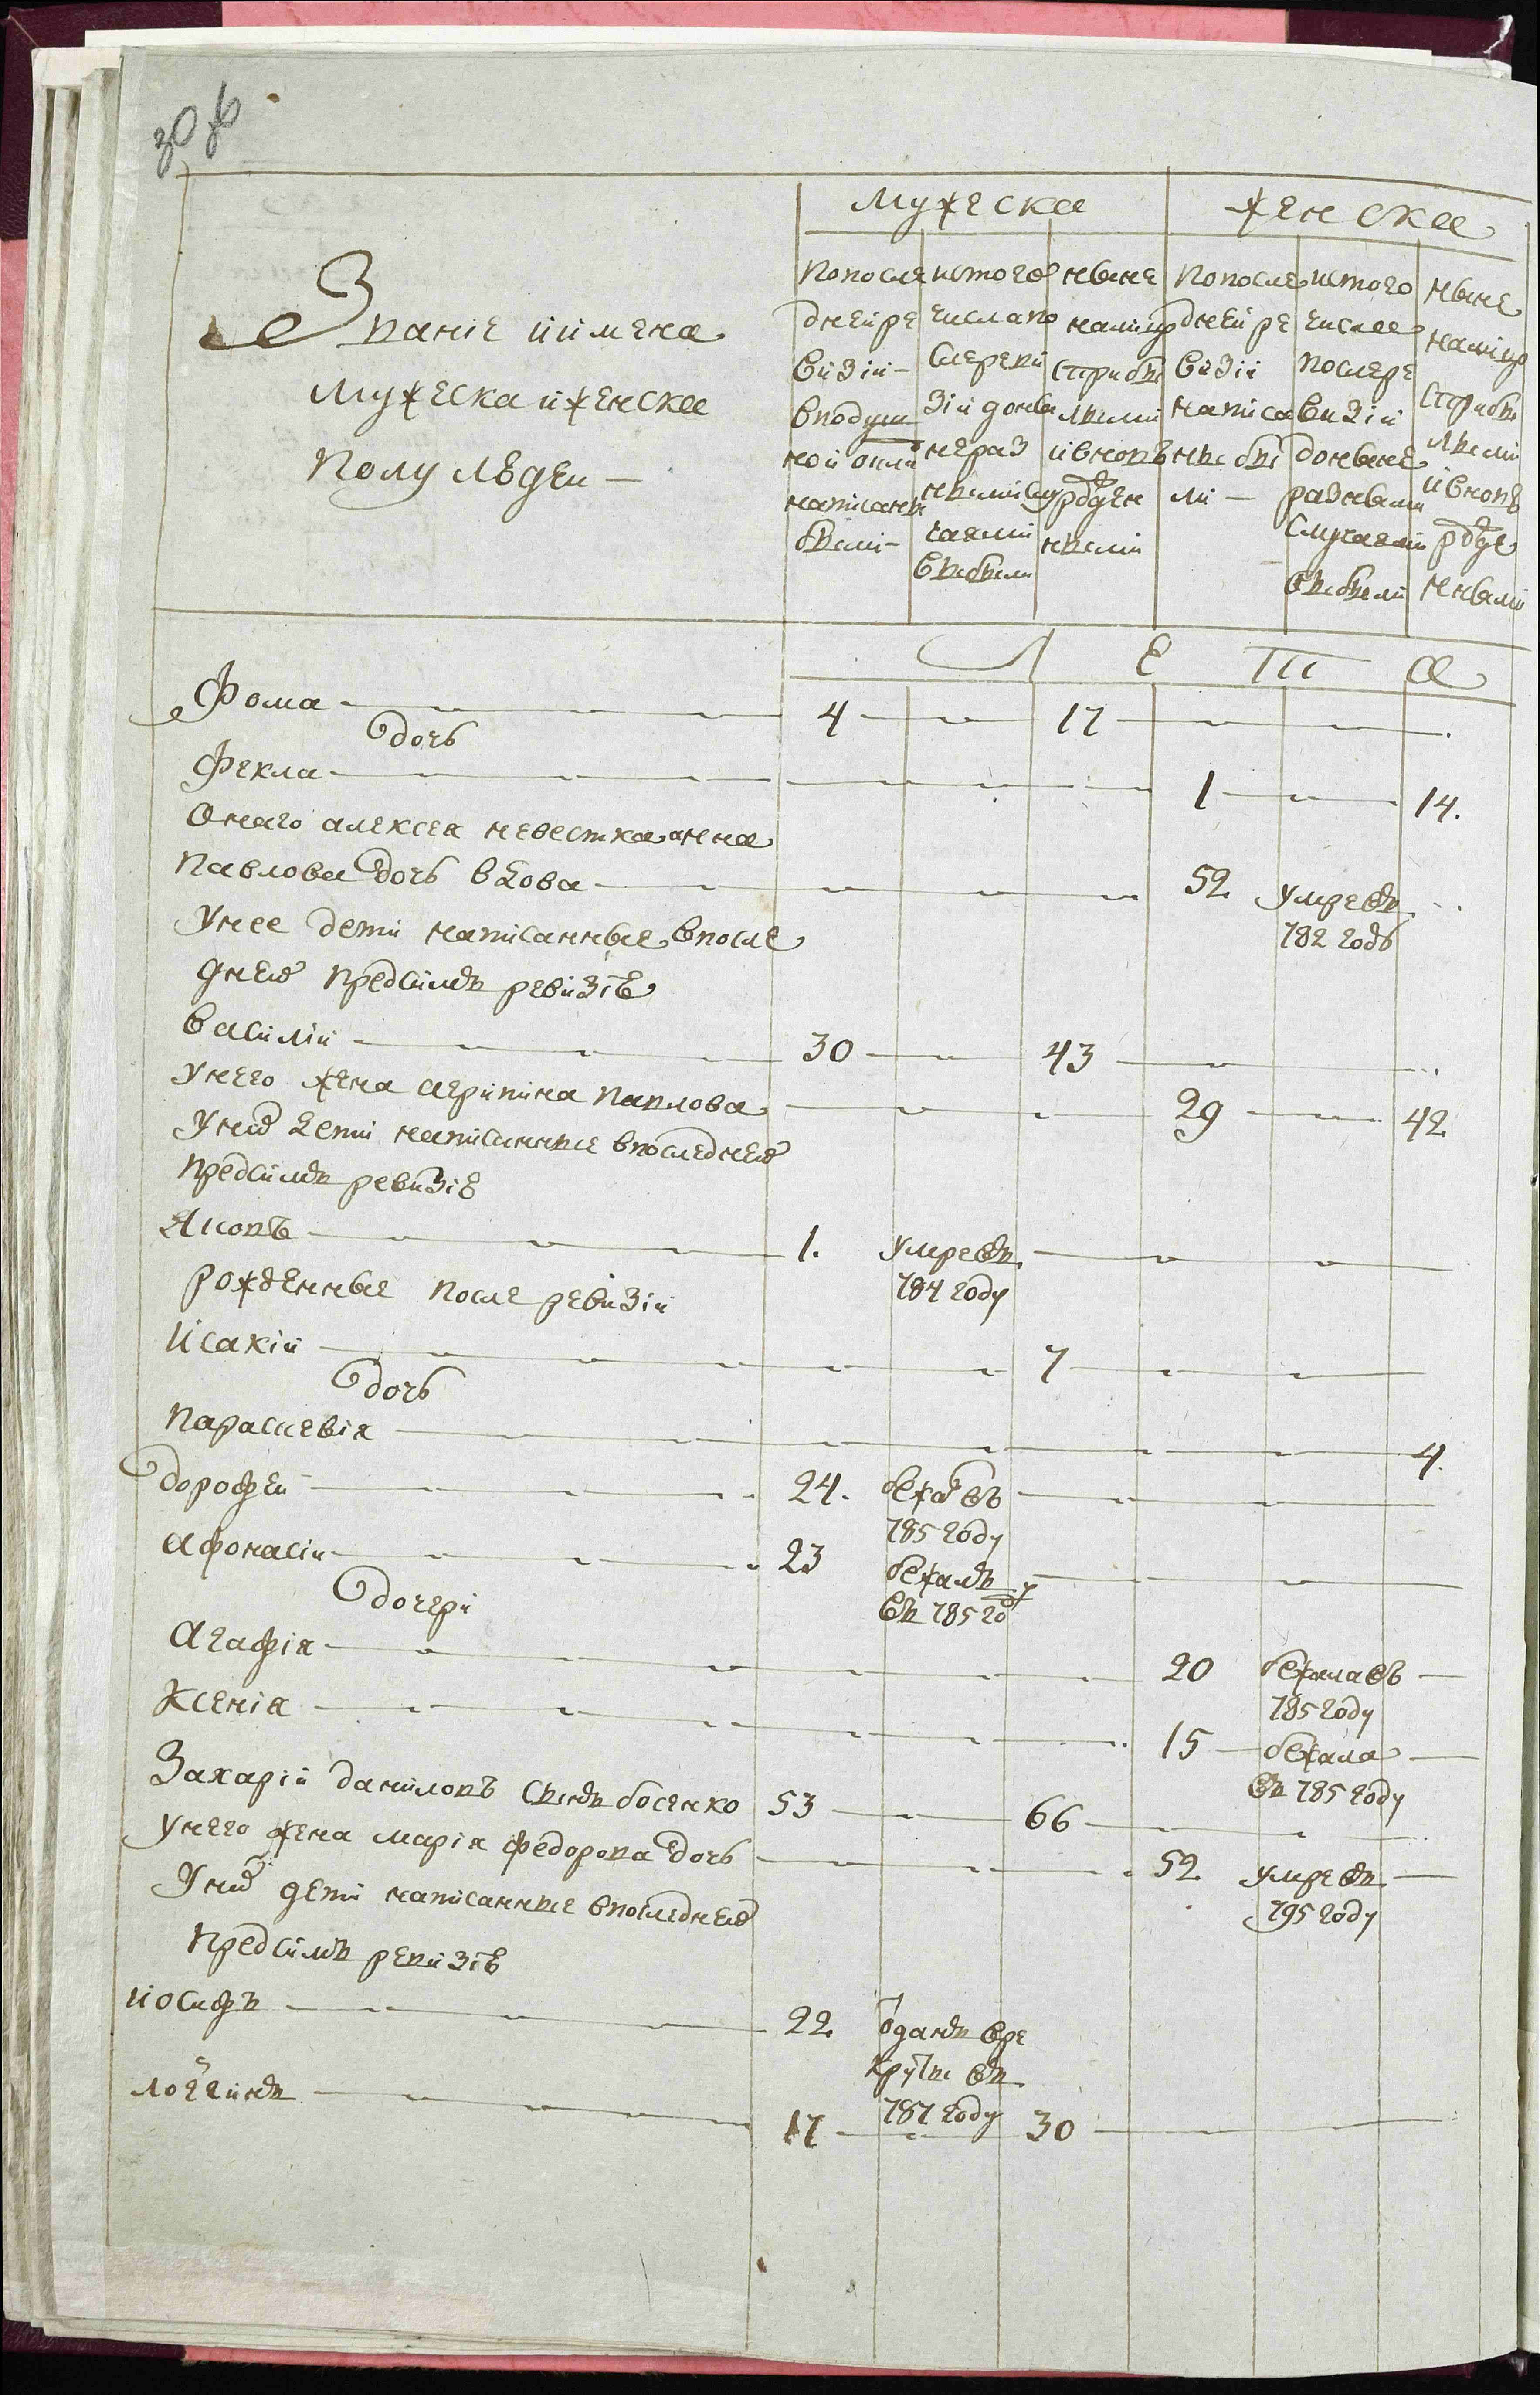 30 об
мужеска
женска
Званіе иимена
мужеска иженска
полу людеи —
Попосле
днейре
визіи —
вподуш
ной окла
написаны
были —
истого
числапо
слереви
зіи доны
нераз
нымислу
чаями
выбыли
ныне
налицо
сприбы
лыми
ивновь
рожден
ными
Попосле
дней ре
визіи
написа
ны бы
ли —
истого
числа
послере
визіи
доныне
разными
случаями
выбыли
ныне
налицо
сприбы
лыми
ивновь
рожде
нными
Л Е Т А
Фома 4 17
дочь
Фекла 1 14.
Онаго алексея невестка анна
Павлова дочь вдова 52 умре въ
782 годь
Унее дети написанные впосле
днею предсимъ ревизію
Василіи 30 43
унего жена агрипина павлова 29 42
Уних дети написанные впоследнею
предсимъ ревизію
Яковъ 1. умре въ
784 году
рожденные после ревизіи
Исакіи 7
дочь
Параскевія 4.
дорофеи 24. бежал въ
785 году
афонасіи 23 бежалъ
въ 785 году
дочери
Агафія 20 бежала въ
785 году
Ксенія 15 бежала
въ 785 году
Захаріи даниловъ сынъ босенко 53 66
унего жена марія федорова дочь 52 умре въ
795 году
Уних дети написанные впоследнею
предсимъ ревизію
иосифъ 22. отданъ вре
круты въ
787 году
логгинъ 17 30